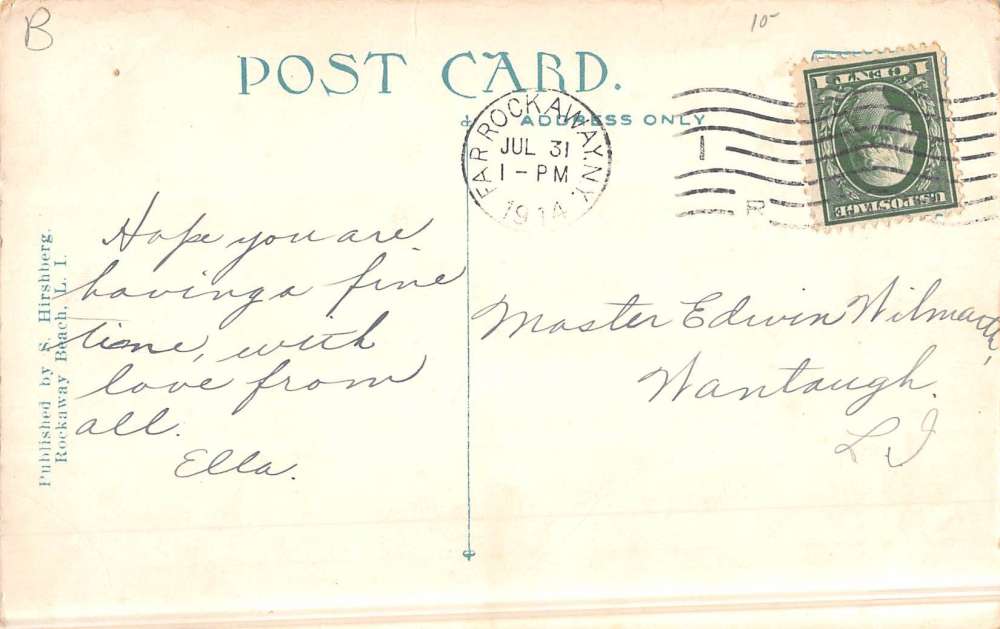 B
10-
POST CARD.
ADDRESS ONLY
FAR ROCKAWAY, N.Y.
JUL 31
1-PM
1914
1
R
1 CENT 1
U.S. POSTAGE
Published by S. Hirshberg.
Rockaway Beach, L. I.
Hope you are
having a fine
time, with
love from
all.
Ella.
Master Edwin Wilmarth,
Wantaugh.
L I